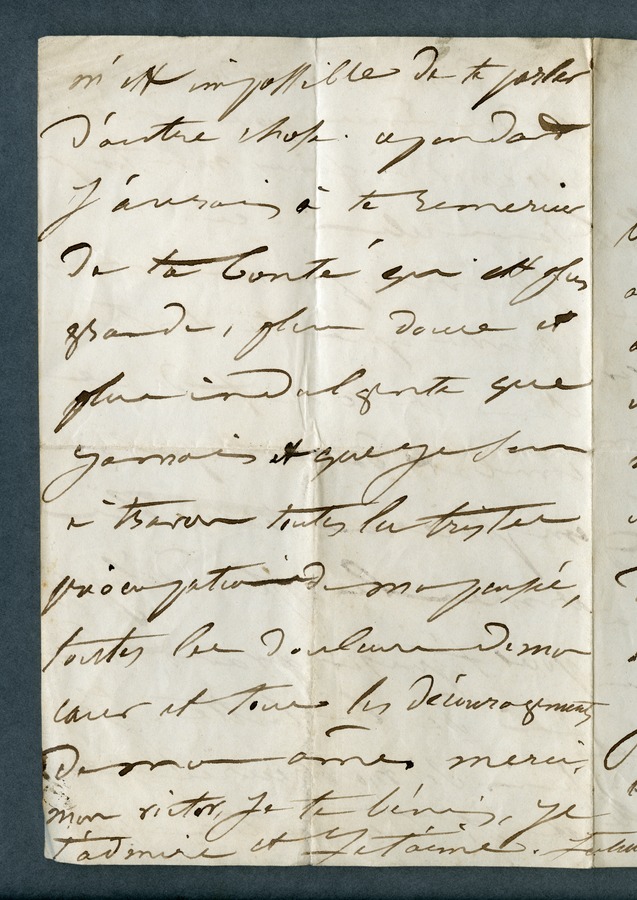 m'est impossible de te parler
d'autre chose. cependant
j'aurais à te remercier
de ta bonté qui est plus
grande, plus douce et
plus indulgente que
jamais et que je sens
à travers toutes les tristes
préocupations de ma pensée,
toutes les douleurs de mon
cœur et tous les découragements
de mon âme. merci,
mon victor, je te bénis, je
t'admire et je t'aime.